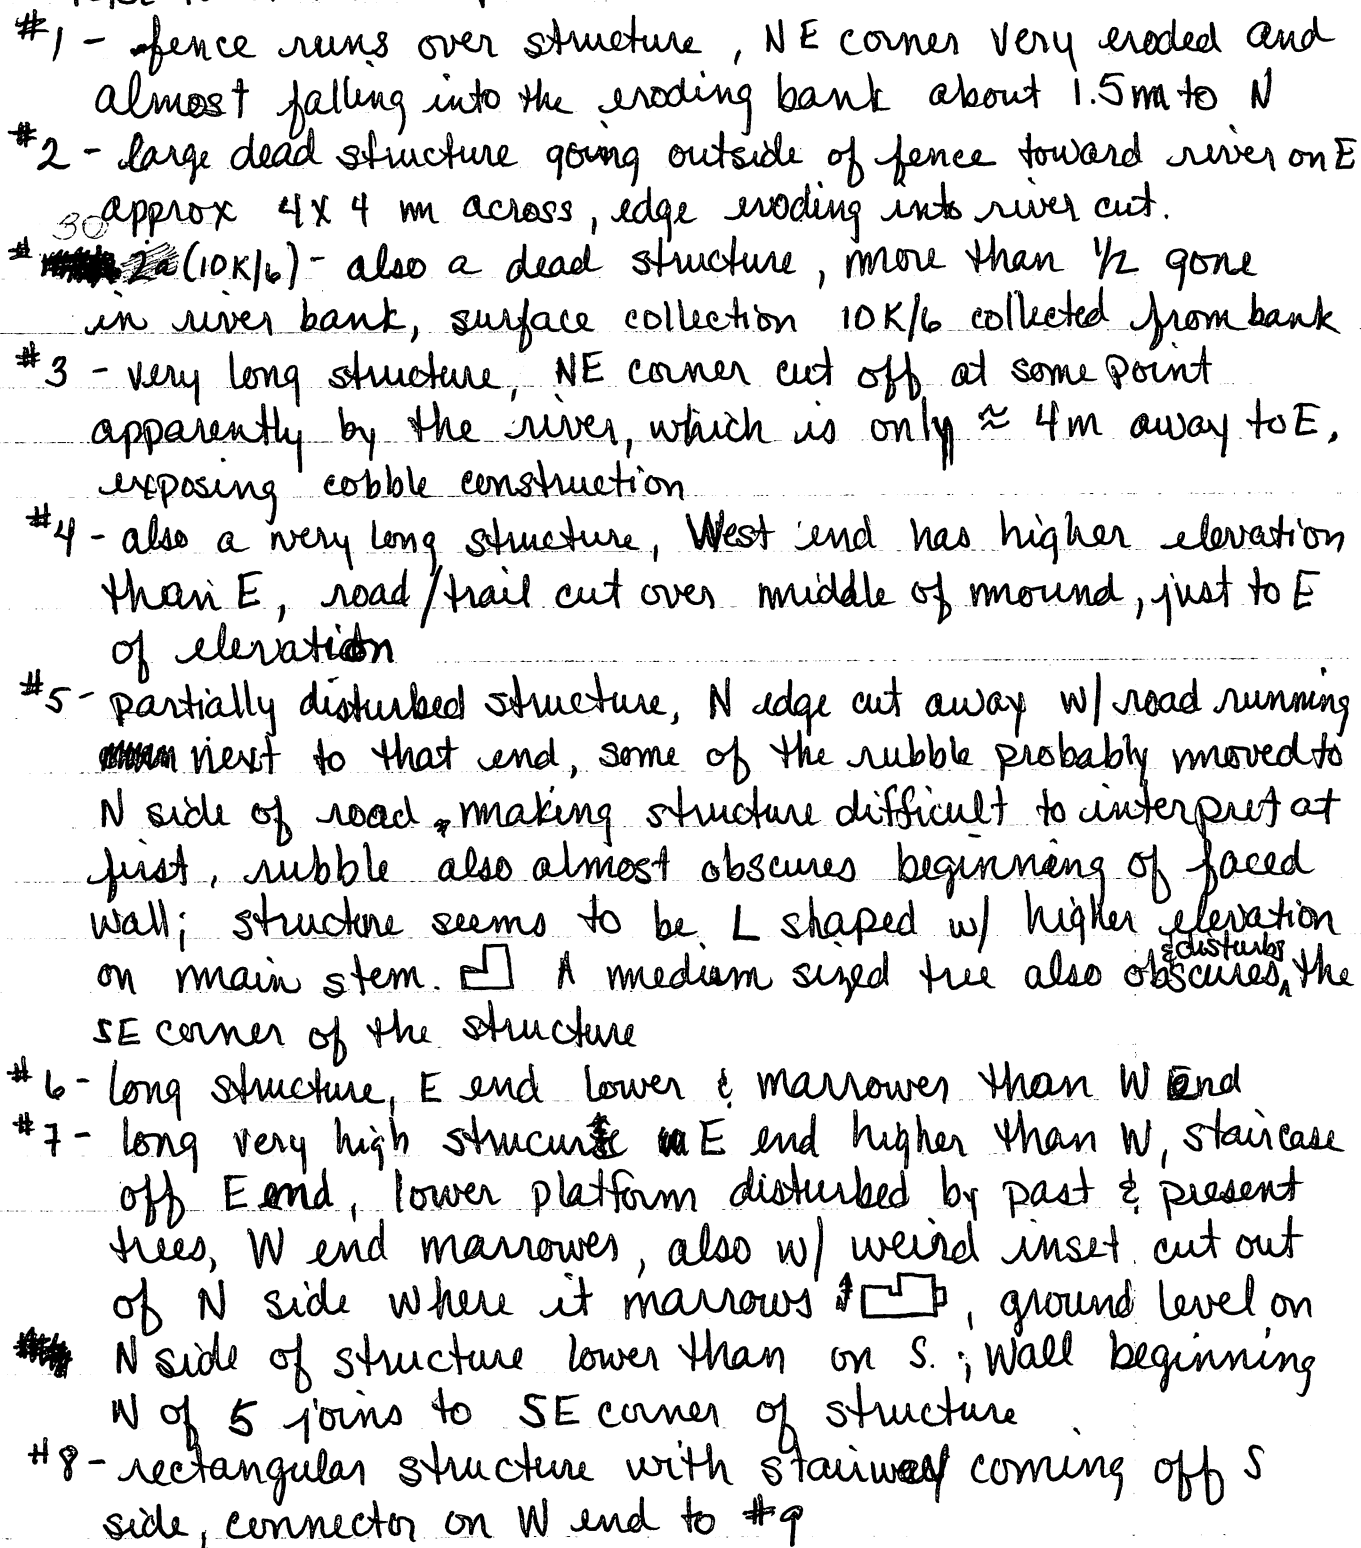 #1 - fence runs over structure, NE corner very eroded and
almost falling into the eroding bank about 1.5m to N
#2 - large dead structure going outside of fence toward river on E
approx 4X4 m across, edge eroding into river cut.
30
# 2a (10K/6) - also a dead structure, more than 1/2 gone
in river bank, surface collection 10K/6 collected from bank
#3 - very long structure, NE corner cut off at some point
apparently by the river, which is only ≈ 4m away to E,
exposing cobble construction
#4 - also a very long structure, West end has higher elevation
than E, road/trail cut over middle of mound, just to E
of elevation
#5 - partially disturbed structure, N edge cut away w/ road running
next to that end, some of the rubble probably moved to
N side of road, making structure difficult to interpret at
first, rubble also almost obscures beginning of faced
wall; structure seems to be L shaped w/ higher elevation
& disturbs
on main stem. A medium sized tree also obscures ^ the
SE corner of the structure
#6 - long structure, E end lower & narrower than W end
#7 - long very high strucure E end higher than W, staircase
off E end, lower platform disturbed by past & present
trees, W end narrower, also w/ weird inset cut out
of N side where it narrows , ground level on
N side of structure lower than on S. ; Wall beginning
W of 5 joins to SE corner of structure
#8 - rectangular structure with stairway coming off S
side, connector on W end to #9